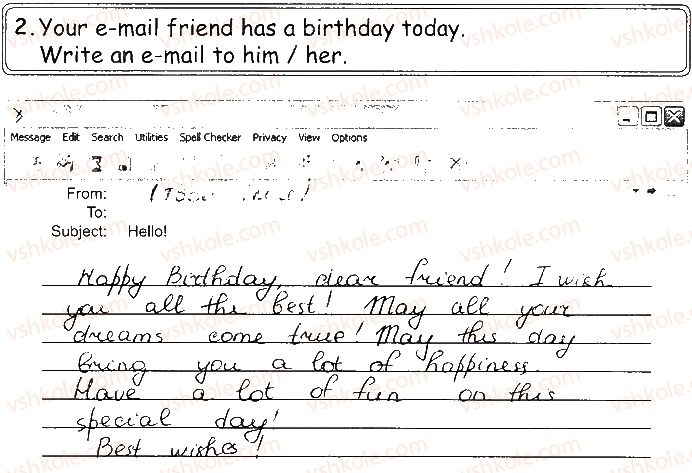 2. Your e-mail friend has a birthday today.
Write an e-mail to him / her.
Message Edit Search Utilities Spell Checker Privacy View Options
From:
To:
Subject: Hello!
Happy Birthday, dear friend! I wish
you all the best! May all your
dreams come true! May this day
bring you a lot of happiness.
Have a lot of fun on this
special day!
Best wishes!
vshkole.com